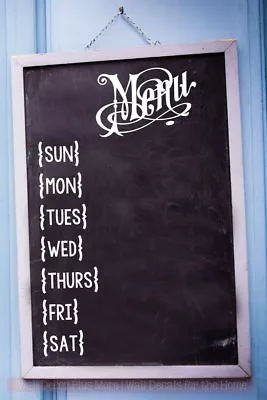 Menu
{SUN}
{MON}
{TUES}
{WED}
{THURS}
{FRI}
{SAT}
Decor Plus More | Wall Decals for the Home